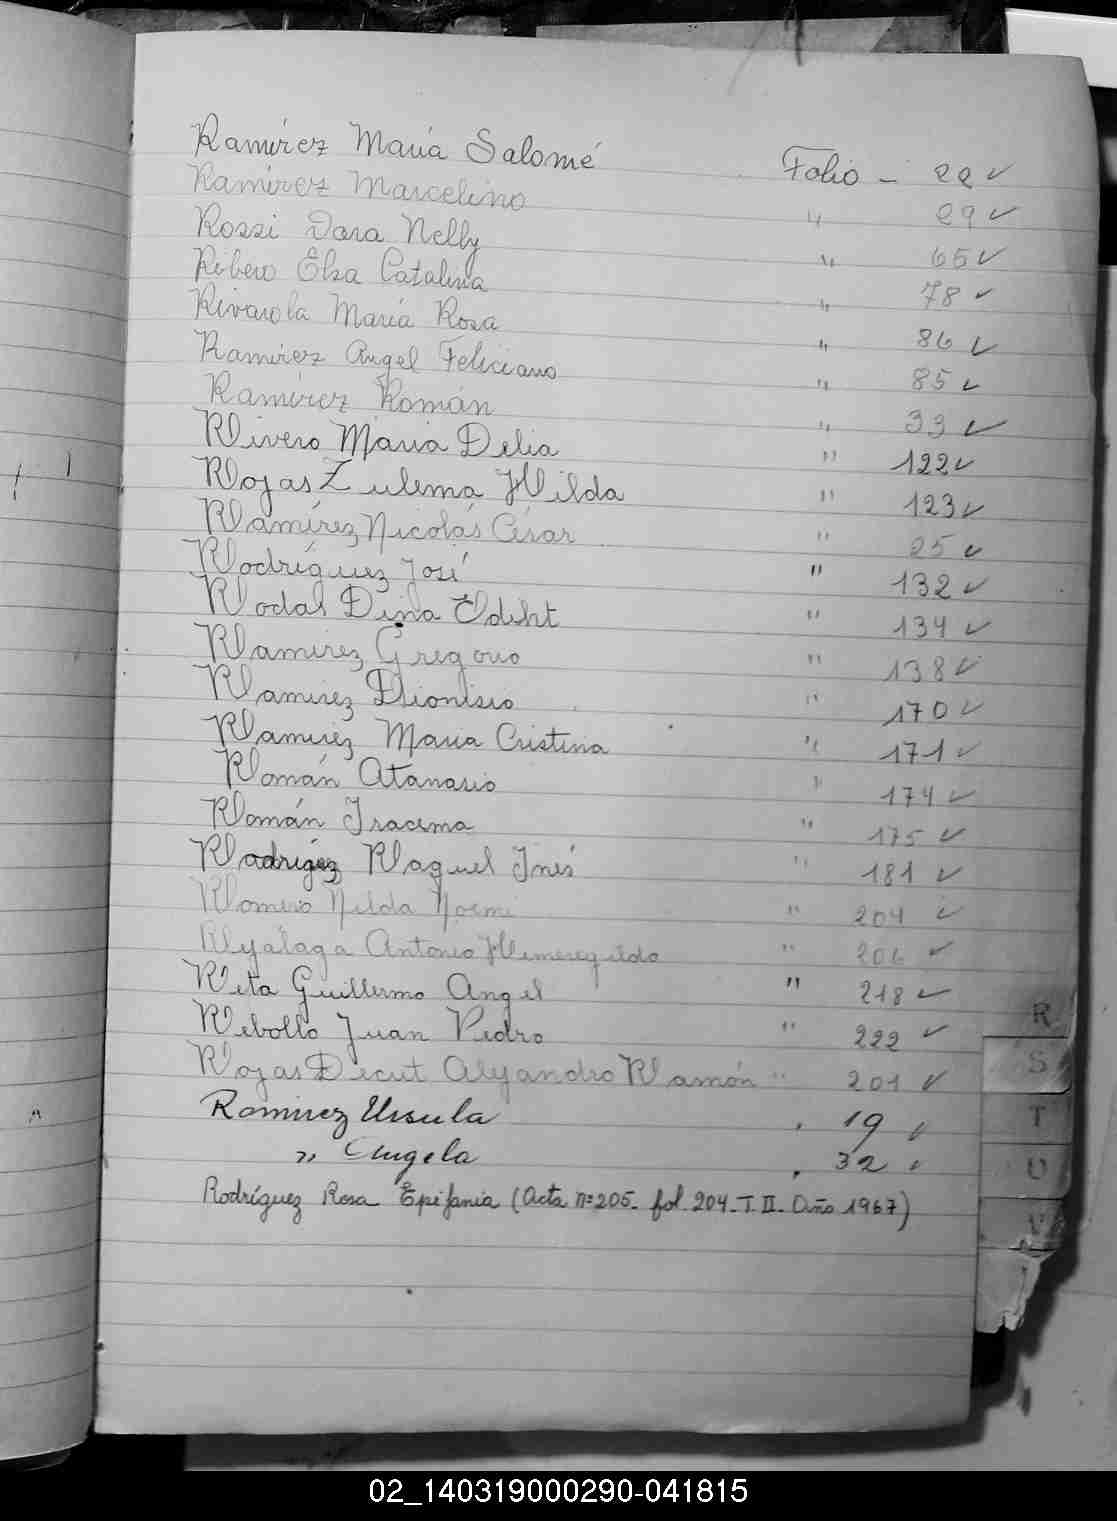 Ramírez María Salomé Folio - 22 ✓
Ramírez Marcelino " 29 ✓
Rossi Dora Nelly " 65 ✓
Ribero Elsa Catalina " 78 ✓
Rivarola María Rosa " 86 ✓
Ramírez Angel Feliciano " 85 ✓
Ramírez Román " 33 ✓
Rivero Maria Delia " 122 ✓
Rojas Zulema Hilda " 123 ✓
Ramírez Nicolás César " 25 ✓
Rodríguez José " 132 ✓
Rodas Dina Ediht " 134 ✓
Ramirez Gregorio " 138 ✓
Ramirez Dionisio " 170 ✓
Ramirez Maria Cristina " 171 ✓
Román Atanasio " 174 ✓
Román Iracema " 175 ✓
Rodrígez Raquel Inés " 181 ✓
Romero Nilda Noemi " 204 ✓
Antonio Hemeregildo " 206 ✓
Reta Guillermo Angel " 218 ✓
Rebollo Juan Pedro " 222 ✓
Rojas Decut Alejandro Ramón " 201 ✓
Ramirez Ursula . 19 ✓
" Angela . 32 ✓
Rodríguez Rosa Epifania (Acta nº 205- fol. 204- T. II- Año 1967)
R
S
T
U
V
02_140319000290-041815